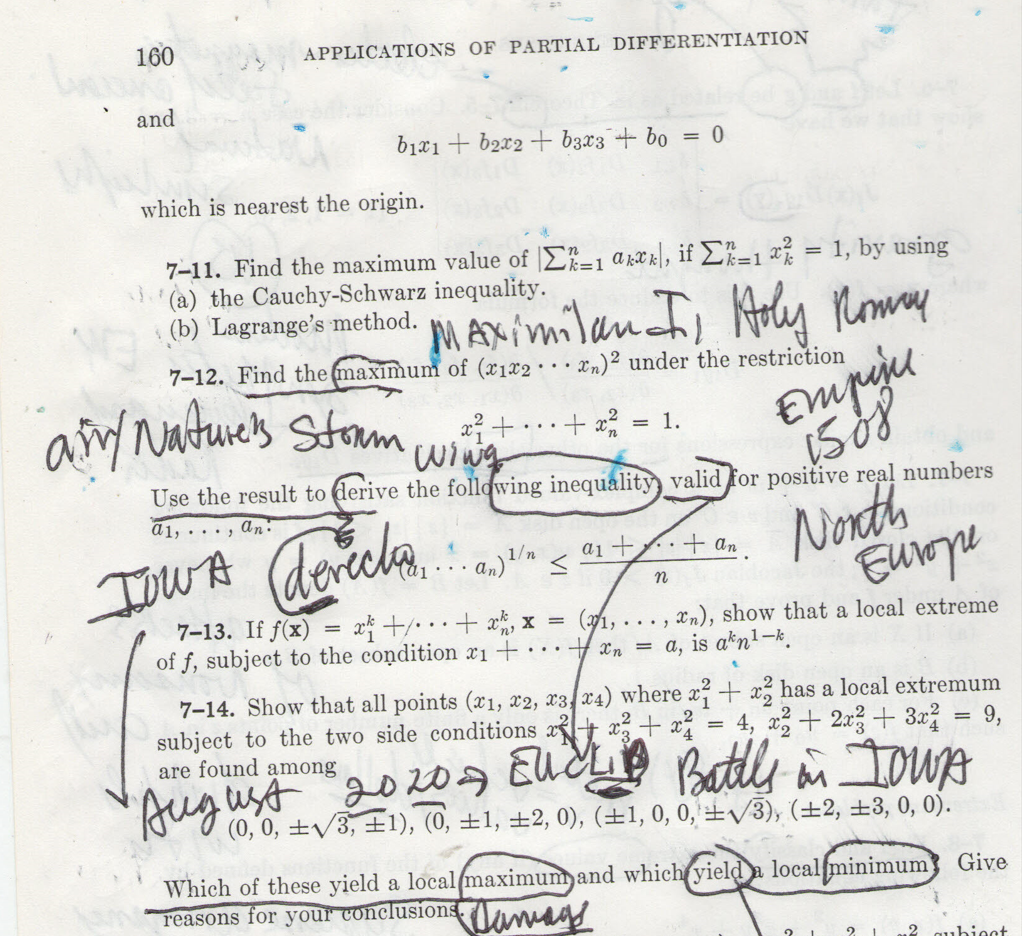 160 APPLICATIONS OF PARTIAL DIFFERENTIATION
and
b₁x₁ + b₂x₂ + b₃x₃ + b₀ = 0
which is nearest the origin.
7–11. Find the maximum value of |∑ⁿₖ₌₁ aₖxₖ|, if ∑ⁿₖ₌₁ x²ₖ = 1, by using
(a) the Cauchy-Schwarz inequality.
(b) Lagrange's method.
MAXimilan I, Holy
7–12. Find the maximum of (x₁x₂ ⋯ xₙ)² under the restriction
Empire
1508
x₁² + ⋯ + xₙ² = 1.
Nature's Storm
wing
Use the result to derive the following inequality, valid for positive real numbers
a₁, …, aₙ:
North
Europe
IOWA derecho
(a₁ ⋯ aₙ)^{1/n} ≤ (a₁ + ⋯ + aₙ)/n.
7–13. If f(x) = x₁ᵏ + ⋯ + xₙᵏ, x = (x₁, …, xₙ), show that a local extreme
of f, subject to the condition x₁ + ⋯ + xₙ = a, is aᵏn¹⁻ᵏ.
7–14. Show that all points (x₁, x₂, x₃, x₄) where x₁² + x₂² has a local extremum
subject to the two side conditions x₁² + x₃² + x₄² = 4, x₂² + 2x₃² + 3x₄² = 9,
are found among
August 2020 → EUCLID Battls in IOWA
(0, 0, ±√3, ±1), (0, ±1, ±2, 0), (±1, 0, 0, ±√3), (±2, ±3, 0, 0).
Which of these yield a local maximum and which yield a local minimum? Give
reasons for your conclusions.
Damage